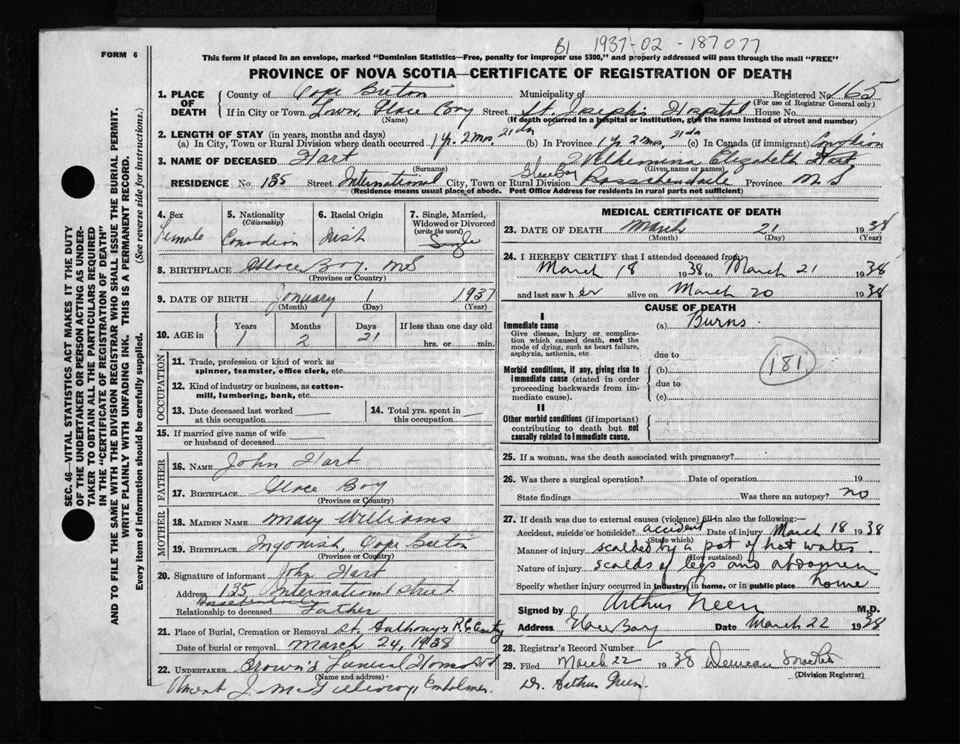 B1 1937-02-187077
FORM 6
This form if placed in an envelope, marked "Dominion Statistics—Free, penalty for improper use $300," and properly addressed will pass through the mail "FREE"
PROVINCE OF NOVA SCOTIA—CERTIFICATE OF REGISTRATION OF DEATH
SEC. 46—VITAL STATISTICS ACT MAKES IT THE DUTY
OF THE UNDERTAKER OR PERSON ACTING AS UNDER-
TAKER TO OBTAIN ALL THE PARTICULARS REQUIRED
IN THE "CERTIFICATE OF REGISTRATION OF DEATH"
AND TO FILE THE SAME WITH THE DIVISION REGISTRAR WHO SHALL ISSUE THE BURIAL PERMIT.
WRITE PLAINLY WITH UNFADING INK. THIS IS A PERMANENT RECORD.
Every item of information should be carefully supplied. (See reverse side for instructions.)
1. PLACE OF DEATH County of Cape Breton Municipality of Registered No. 165
(For use of Registrar General only)
If in City or Town Town, Glace Bay Street St. Joseph's Hospital House No.
(Name) (If death occurred in hospital or institution, give the name instead of street and number)
2. LENGTH OF STAY (in years, months and days)
(a) In City, Town or Rural Division where death occurred 1 yr. 2 mos. 21 ds (b) In Province 1 yr 2 mos. 21 ds (c) In Canada (if immigrant)
3. NAME OF DECEASED Hart Wilhemina Elizabeth Hart
(Surname) (Given name or names)
RESIDENCE No. 135 Street International City, Town or Rural Division Glace Bay Passchendaele Province N S
(Residence means usual place of abode. Post Office Address for residents in rural parts not sufficient)
4. Sex Female
5. Nationality (Citizenship) Canadian
6. Racial Origin Irish
7. Single, Married, Widowed or Divorced (write the word) Single
8. BIRTHPLACE Glace Bay. NS
(Province or Country)
9. DATE OF BIRTH January 1 1937
(Month) (Day) (Year)
10. AGE in Years Months Days If less than one day old
1 2 21 hrs. or min.
OCCUPATION
11. Trade, profession or kind of work as spinner, teamster, office clerk, etc.
12. Kind of industry or business, as cotton-mill, lumbering, bank, etc.
13. Date deceased last worked at this occupation
14. Total yrs. spent in this occupation
15. If married give name of wife or husband of deceased
FATHER
16. NAME John Hart
17. BIRTHPLACE Glace Bay
(Province or Country)
MOTHER
18. MAIDEN NAME Mary Williams
19. BIRTHPLACE Ingonish, Cape Breton
(Province or Country)
20. Signature of informant John Hart
Address 135 International Street
Passchendaele
Relationship to deceased Father
21. Place of Burial, Cremation or Removal St. Anthony's R.C.
Date of burial or removal March 24, 1938
22. UNDERTAKER Brown's Funeral Home
(Name and address)
Vincent J. Embalmer
MEDICAL CERTIFICATE OF DEATH
23. DATE OF DEATH March 21 1938
(Month) (Day) (Year)
24. I HEREBY CERTIFY that I attended deceased from
March 18 1938 to March 21 1938
and last saw her alive on March 20 1938
CAUSE OF DEATH
I
Immediate cause
Give disease, injury or complication which caused death, not the mode of dying, such as heart failure, asphyxia, asthenia, etc
(a) Burns
due to
Morbid conditions, if any, giving rise to immediate cause (stated in order proceeding backwards from immediate cause).
(b)
due to
(c)
181
II
Other morbid conditions (if important) contributing to death but not causally related to immediate cause.
25. If a woman, was the death associated with pregnancy?
26. Was there a surgical operation? Date of operation 19
State findings Was there an autopsy? no
27. If death was due to external causes (violence) fill in also the following:—
Accident, suicide or homicide? accident Date of injury March 18 1938
(State which)
Manner of injury scalded by a pot of hot water
(How sustained)
Nature of injury scalds of legs and abdomen
Specify whether injury occurred in industry, in home, or in public place home
Signed by Arthur Green M.D.
Address Glace Bay Date March 22 1938
28. Registrar's Record Number
29. Filed March 22 1938 Duncan
(Division Registrar)
Dr. Arthur Green.